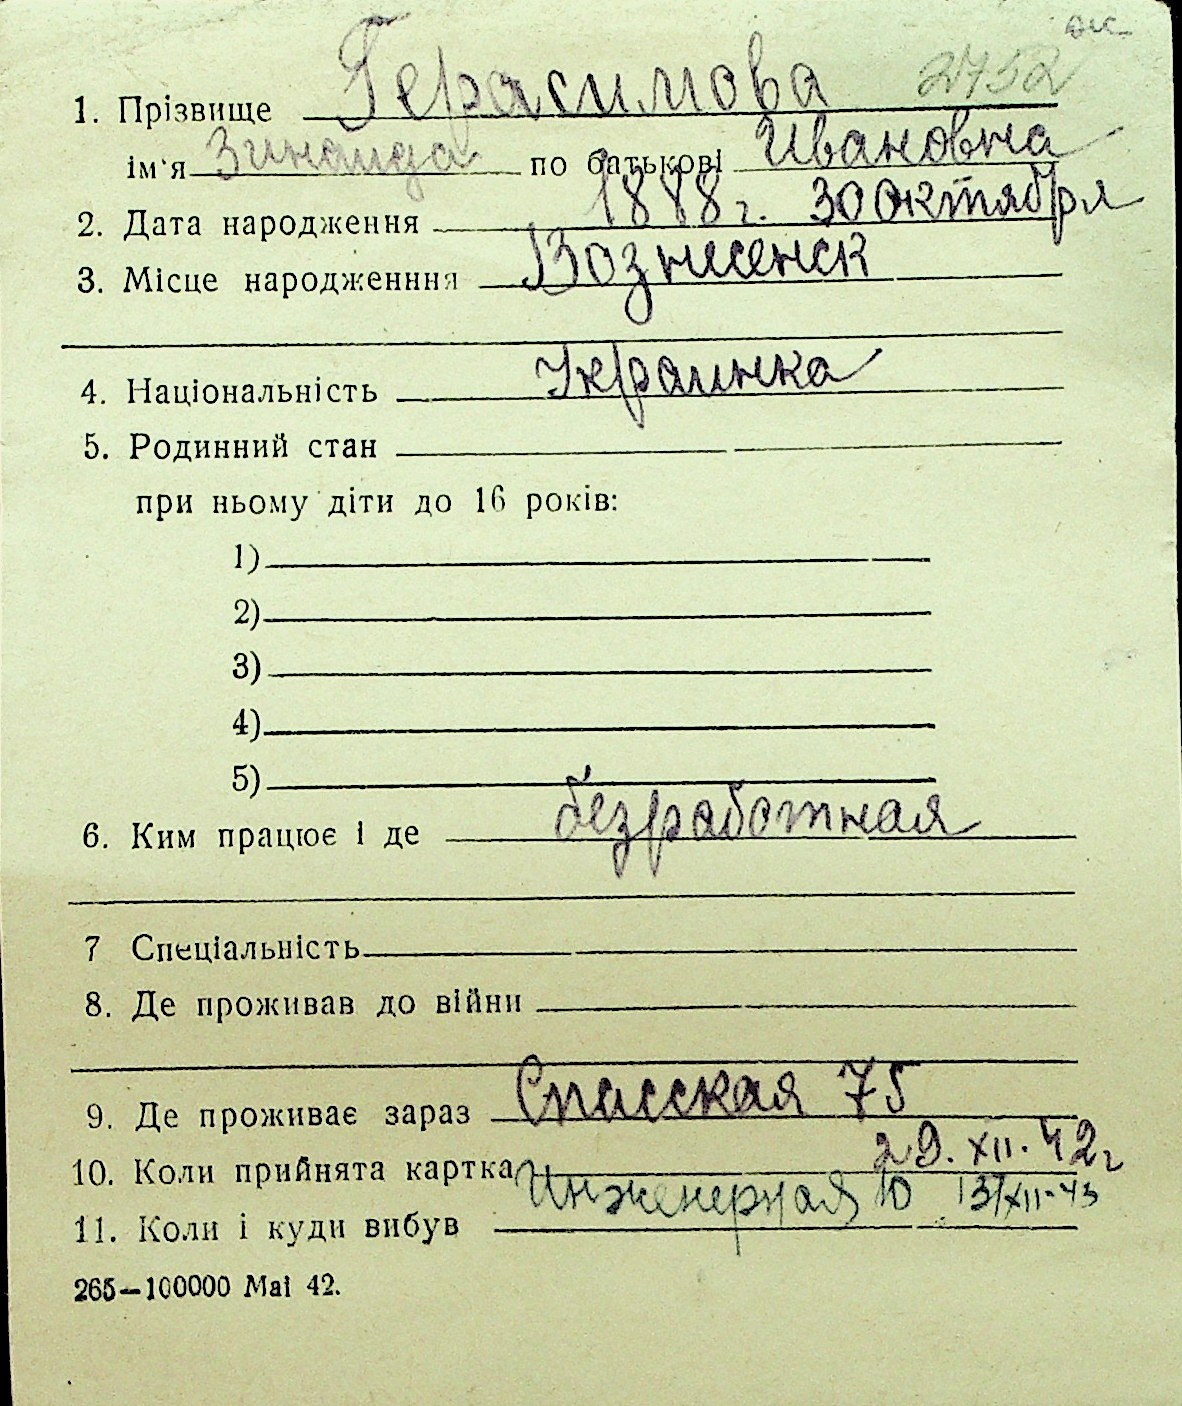 2752
1. Прізвище Герасимова
ім'я Зинаида по батькові Ивановна
2. Дата народження 1888 г. 30 октября
3. Місце народженння Вознесенск
4. Національність Украинка
5. Родинний стан
при ньому діти до 16 років:
1)
2)
3)
4)
5)
6. Ким працює і де безработная
7 Спеціальність
8. Де проживав до війни
9. Де проживає зараз Спасская 75
10. Коли прийнята картка 29. XII. 42 г
Инженерная 10 13/XII-43
11. Коли і куди вибув
265—100000 Mai 42.